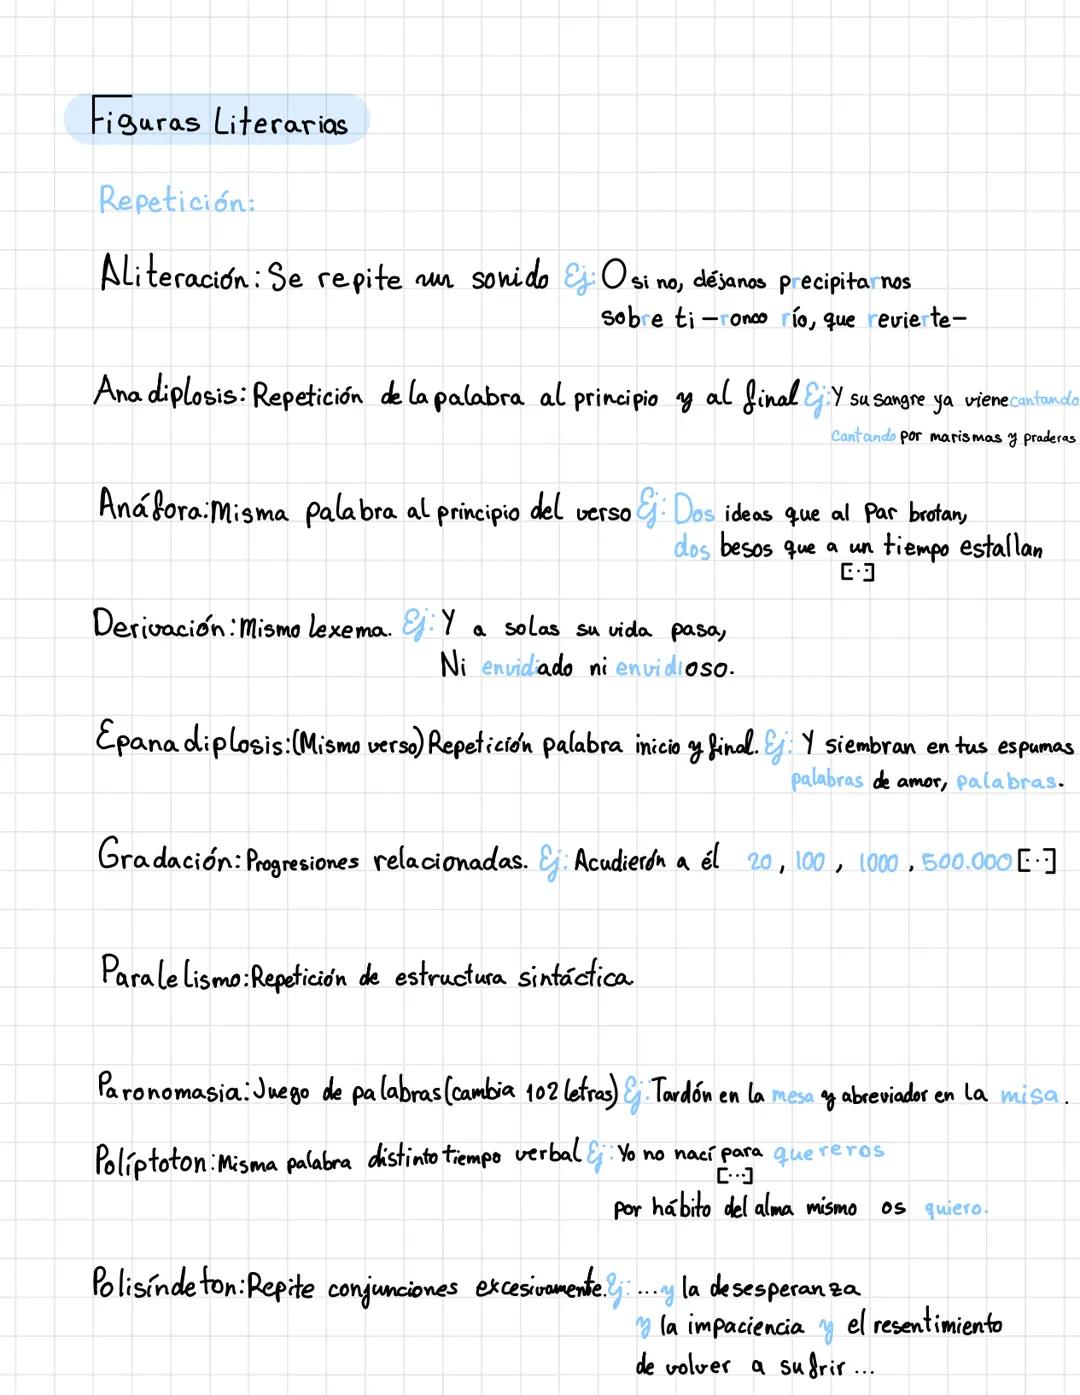 Figuras Literarias
Repetición:
Aliteración: Se repite un sonido Ej: O si no, déjanos precipitarnos
sobre ti –ronco río, que revierte–
Anadiplosis: Repetición de la palabra al principio y al final Ej: Y su sangre ya viene cantando
cantando por marismas y praderas
Anáfora: Misma palabra al principio del verso Ej: Dos ideas que al Par brotan,
dos besos que a un tiempo estallan
[...]
Derivación: Mismo lexema. Ej: Y a solas su vida pasa,
Ni envidiado ni envidioso.
Epanadiplosis: (Mismo verso) Repetición palabra inicio y final. Ej: Y siembran en tus espumas
palabras de amor, palabras.
Gradación: Progresiones relacionadas. Ej: Acudierón a él 20, 100, 1000, 500.000 [...]
Paralelismo: Repetición de estructura sintáctica
Paronomasia: Juego de palabras (cambia 1 o 2 letras) Ej: Tardón en la mesa y abreviador en la misa.
Políptoton: Misma palabra distinto tiempo verbal Ej: Yo no nací para quereros
[...]
por hábito del alma mismo os quiero.
Polisíndeton: Repite conjunciones excesivamente. Ej: ...y la desesperanza
y la impaciencia y el resentimiento
de volver a sufrir...